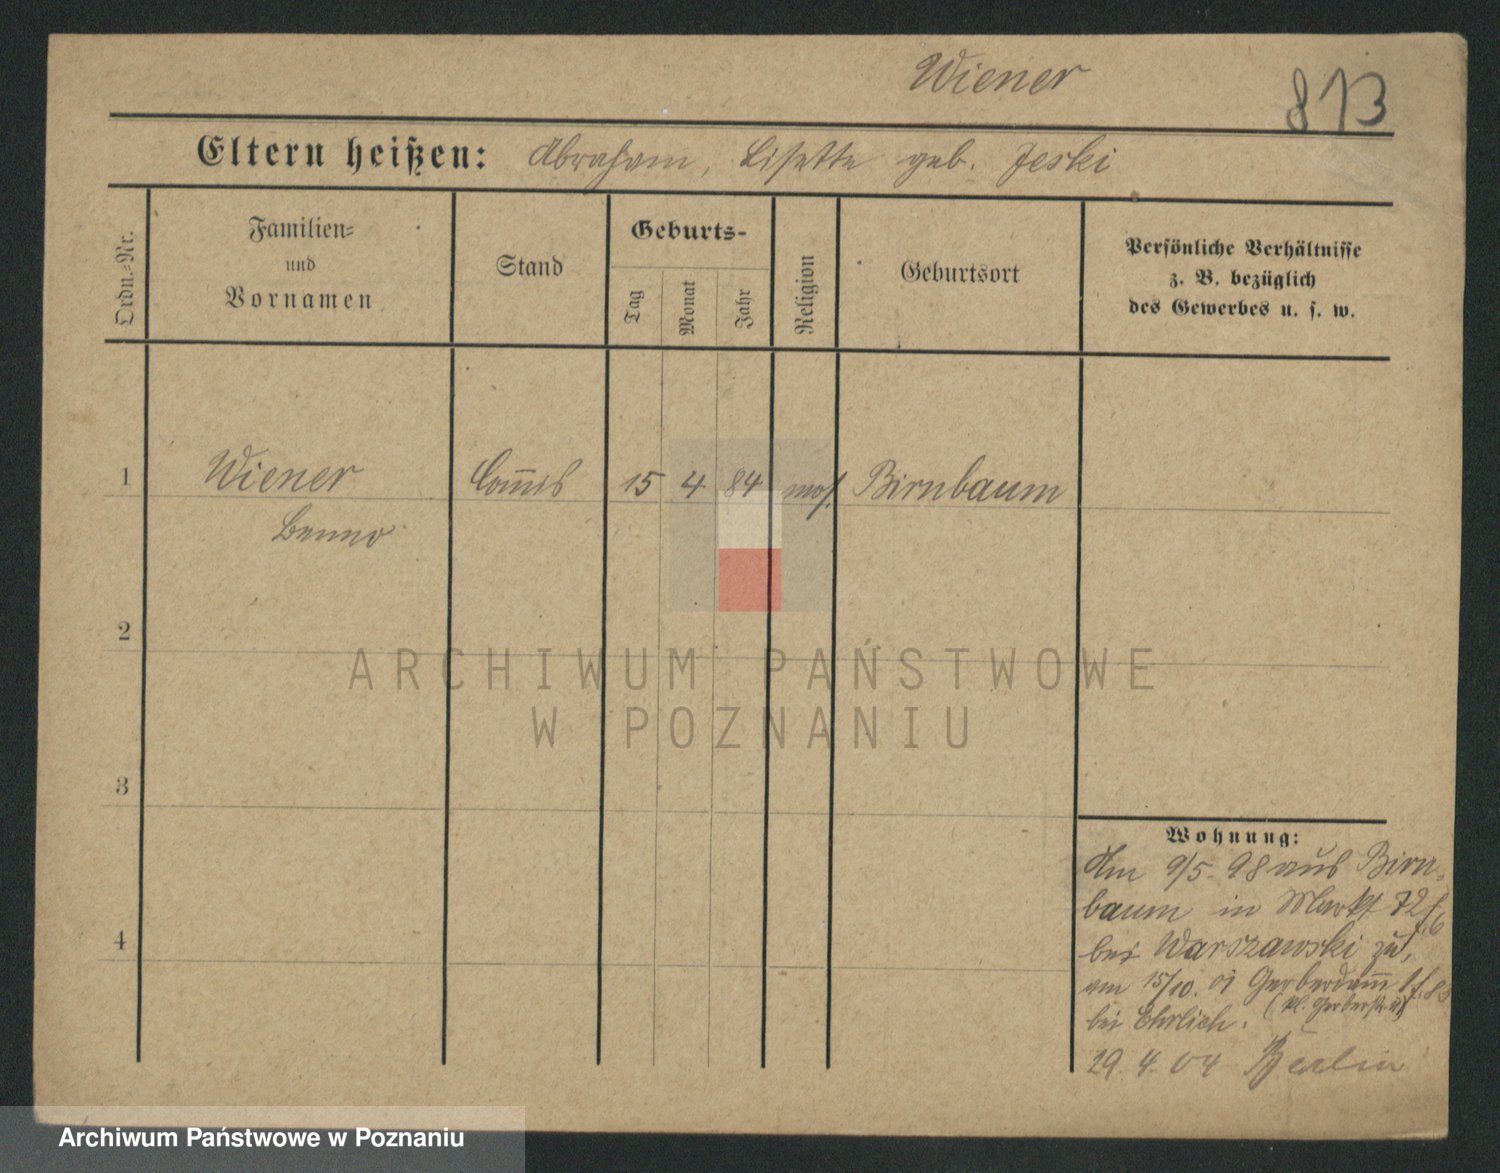 Wiener
813
Eltern heißen: Abraham, Lisette geb. Jeski
Ordn.=Nr.
Familien=
und
Vornamen
Stand
Geburts=
Tag
Monat
Jahr
Religion
Geburtsort
Persönliche Verhältnisse
z. B. bezüglich
des Gewerbes u. s. w.
1 Wiener Com̅is 15 4 84 mos. Birnbaum
Benno
2
3
4
Wohnung:
Am 9/5. 98 aus Birn=
baum in Markt 72
bei Warszawski zu,
am 15/10. 01 Gerberdam̅ 1
(kl. Gerberstr.)
bei Ehrlich.
29. 4. 04 Berlin
ARCHIWUM PAŃSTWOWE
W POZNANIU
Archiwum Państwowe w Poznaniu